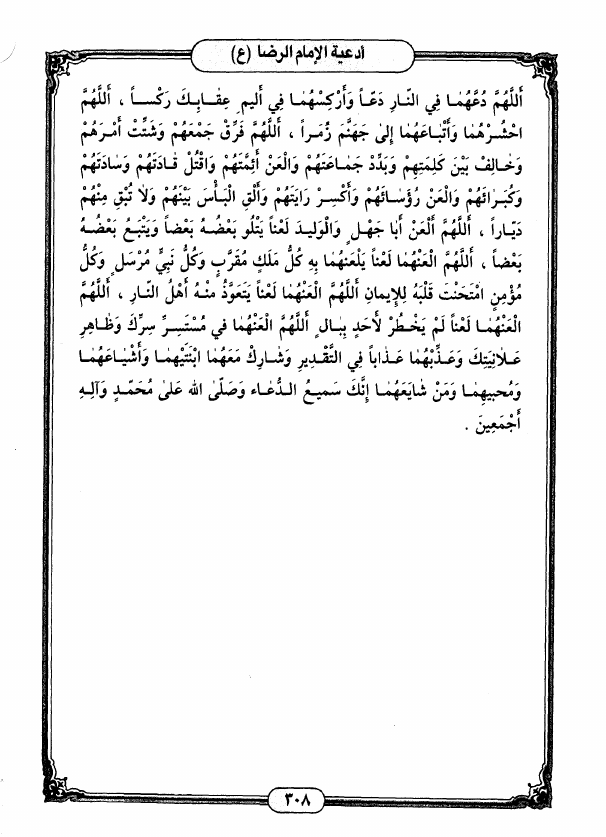 أدعية الإمام الرضا (ع)
أَللّٰهُمَّ دُعَّهُمٰا فِي النّٰارِ دَعّاً وَأَرْكِسْهُمٰا فِي أَلِيمِ عِقٰابِكَ رَكْساً ، أَللّٰهُمَّ
احْشُرْهُمٰا وَأَتْبٰاعَهُمٰا إِلىٰ جَهَنَّمَ زُمَراً ، أَللّٰهُمَّ فَرِّقْ جَمْعَهُمْ وَشَتِّتْ أَمْرَهُمْ
وَخٰالِفْ بَيْنَ كَلِمَتِهِمْ وَبَدِّدْ جَمٰاعَتَهُمْ وَالْعَنْ أَئِمَّتَهُمْ وَاقْتُلْ قٰادَتَهُمْ وَسٰادَتَهُمْ
وَكُبَرٰائَهُمْ وَالْعَنْ رُؤَسٰائَهُمْ وَأَكْسِرْ رٰايَتَهُمْ وَأَلْقِ الْبَأْسَ بَيْنَهُمْ وَلاٰ تُبْقِ مِنْهُمْ
دَيّٰاراً ، أَللّٰهُمَّ أَلْعَنْ أَبٰا جَهْلٍ وَالْوَلِيدَ لَعْناً يَتْلُو بَعْضُهُ بَعْضاً وَيَتْبَعُ بَعْضُهُ
بَعْضاً ، أَللّٰهُمَّ الْعَنْهُمٰا لَعْناً يَلْعَنُهُمٰا بِهِ كُلُّ مَلَكٍ مُقَرَّبٍ وَكُلُّ نَبِيٍّ مُرْسَلٍ وَكُلُّ
مُؤْمِنٍ امْتَحَنْتَ قَلْبَهُ لِلإِيمٰانِ أَللّٰهُمَّ الْعَنْهُمٰا لَعْناً يَتَعَوَّذُ مِنْهُ أَهْلُ النّٰارِ ، أَللّٰهُمَّ
الْعَنْهُمٰا لَعْناً لَمْ يَخْطُرْ لأَحَدٍ بِبٰالٍ أَللّٰهُمَّ الْعَنْهُمٰا فِي مُسْتَسِرِّ سِرِّكَ وَظٰاهِرِ
عَلاٰنِيَتِكَ وَعَذِّبْهُمٰا عَذٰاباً فِي التَّقْدِيرِ وَشٰارِكْ مَعَهُمٰا ابْنَتَيْهِمٰا وَأَشْيٰاعَهُمٰا
وَمُحِبِيهِمٰا وَمَنْ شٰايَعَهُمٰا إِنَّكَ سَمِيعُ الدُّعٰاء وَصَلّىٰ الله عَلىٰ مُحَمَّدٍ وَآلِهِ
أَجْمَعِينَ .
٣٠٨